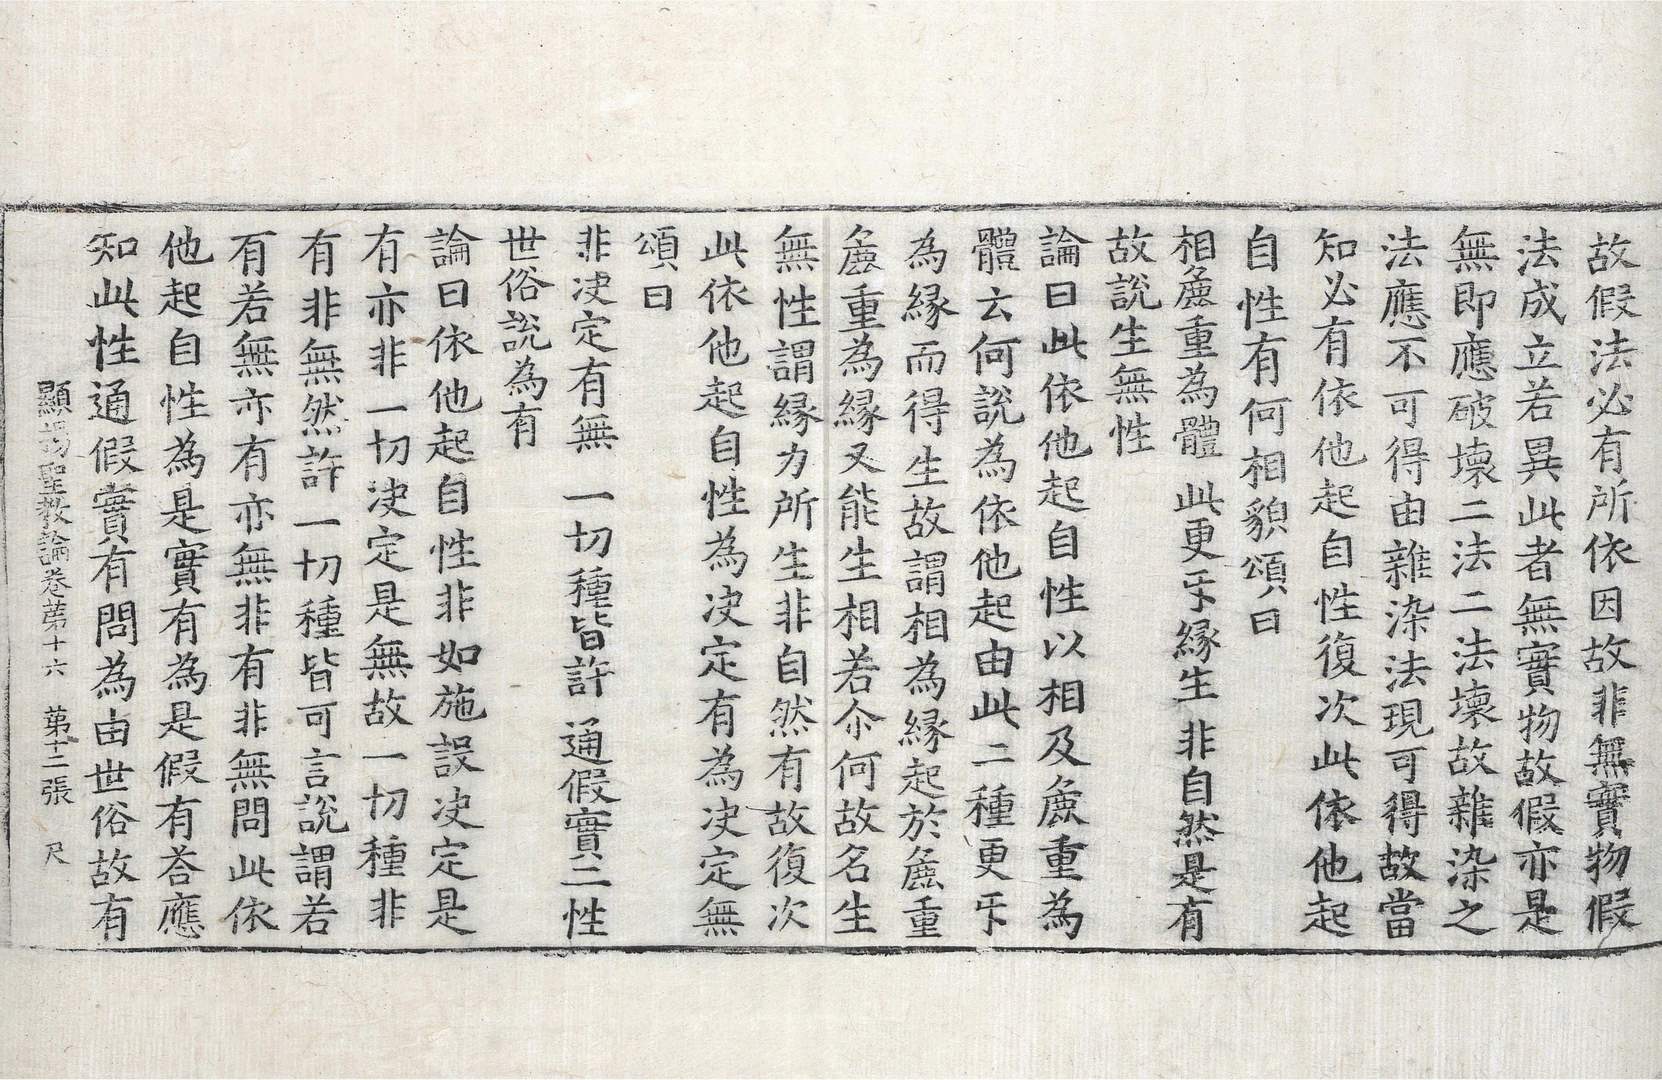 故假法必有所依因故非無實物假
法成立若異此者無實物故假亦是
無即應破壞二法二法壞故雜染之
法應不可得由雜染法現可得故當
知必有依他起自性復次此依他起
自性有何相貌頌曰
相麁重為體 此更㸦緣生 非自然是有
故說生無性
論曰此依他起自性以相及麁重為
體云何說為依他起由此二種更㸦
為緣而得生故謂相為緣起於麁重
麁重為緣又能生相若尒何故名生
無性謂緣力所生非自然有故復次
此依他起自性為决定有為决定無
頌曰
非决定有無 一切種皆許 通假實二性
世俗說為有
論曰依他起自性非如施設决定是
有亦非一切决定是無故一切種非
有非無然許一切種皆可言說謂若
有若無亦有亦無非有非無問此依
他起自性為是實有為是假有荅應
知此性通假實有問為由世俗故有
顯揚聖教論卷苐十六 苐十二張 尺